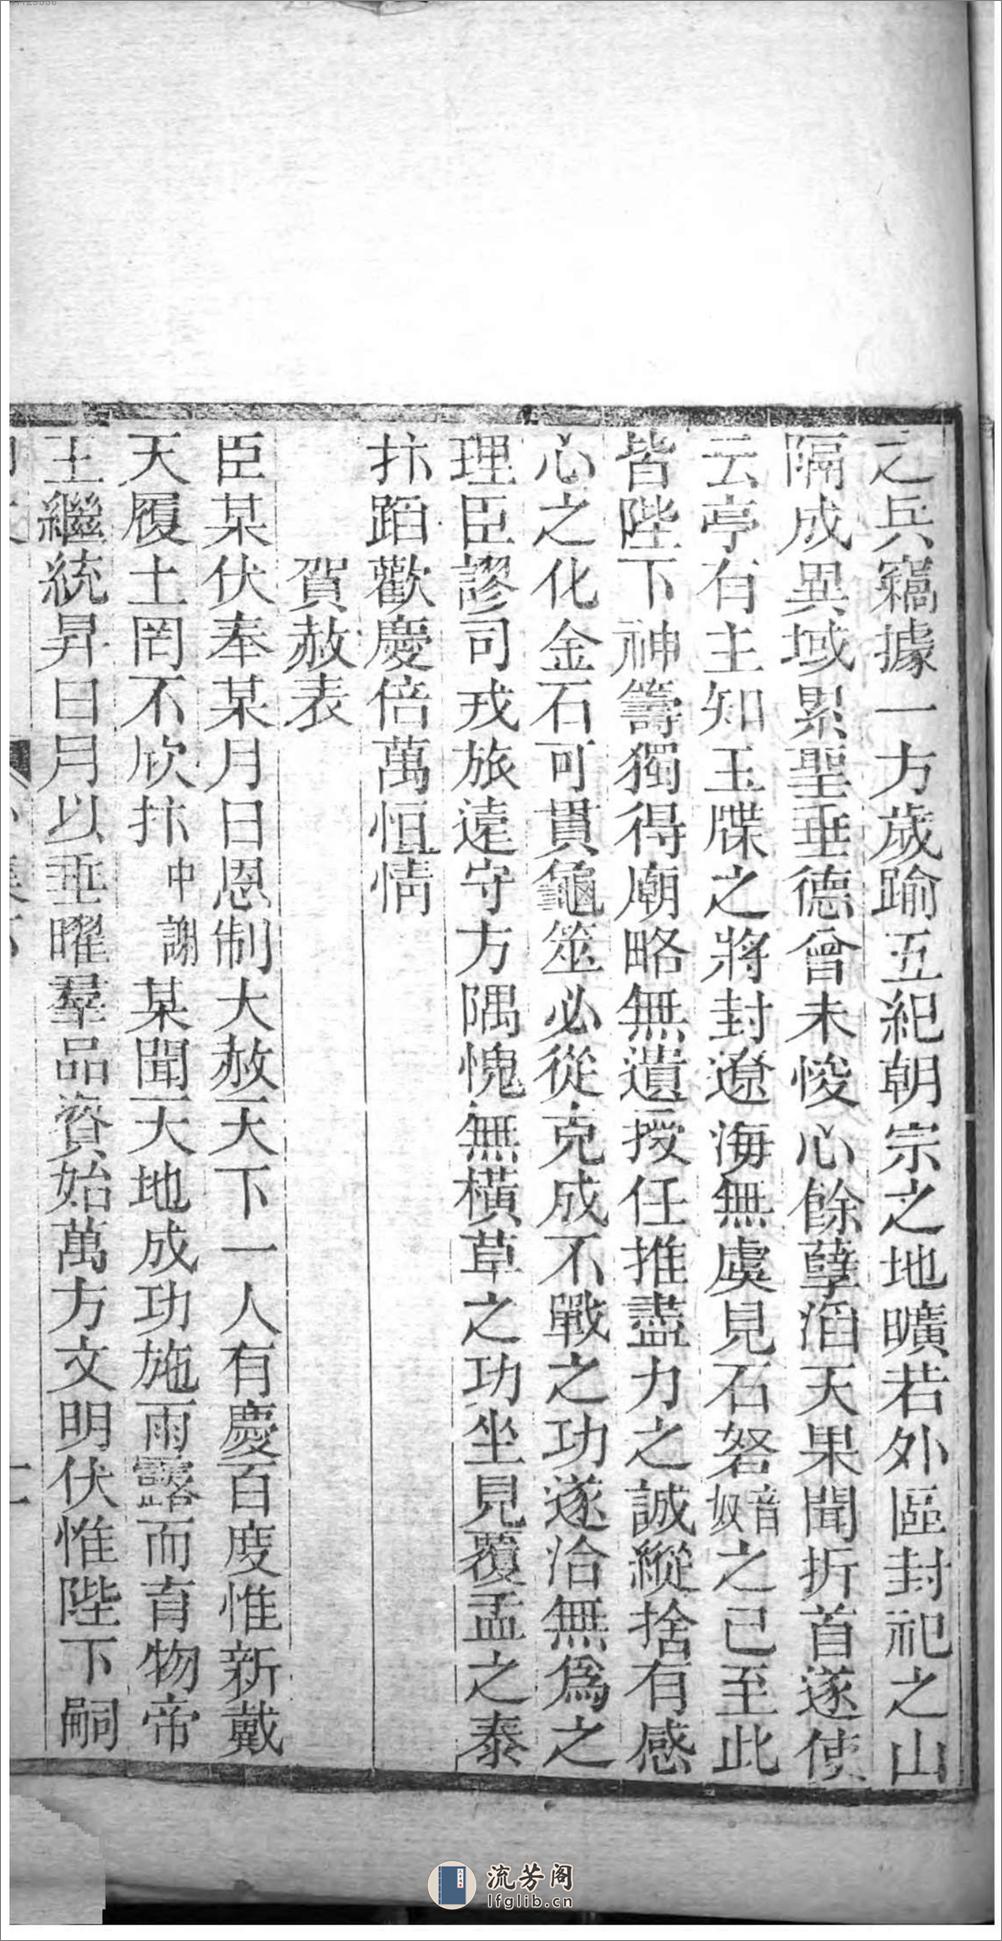 之兵竊據一方歲踰五紀朝宗之地曠若外區封祀之山
隔成異域累聖垂德曾未悛心餘孽滔天果聞折首遂使
云亭有主知玉牒之將封遼海無虞見石砮音奴之已至此
皆陛下神籌獨得廟略無遺授任推盡力之誠縱捨有感
心之化金石可貫龜筮必從克成不戰之功遂洽無爲之
理臣謬司戎旅遠守方隅愧無橫草之功坐見覆盂之泰
抃蹈歡慶倍萬恒情
賀赦表
臣某伏奉某月日恩制大赦天下一人有慶百度惟新戴
天履土罔不欣抃中謝某聞天地成功施雨露而育物帝
王繼統昇日月以垂曜羣品資始萬方文明伏惟陛下嗣
流芳阁
lfglib.cn